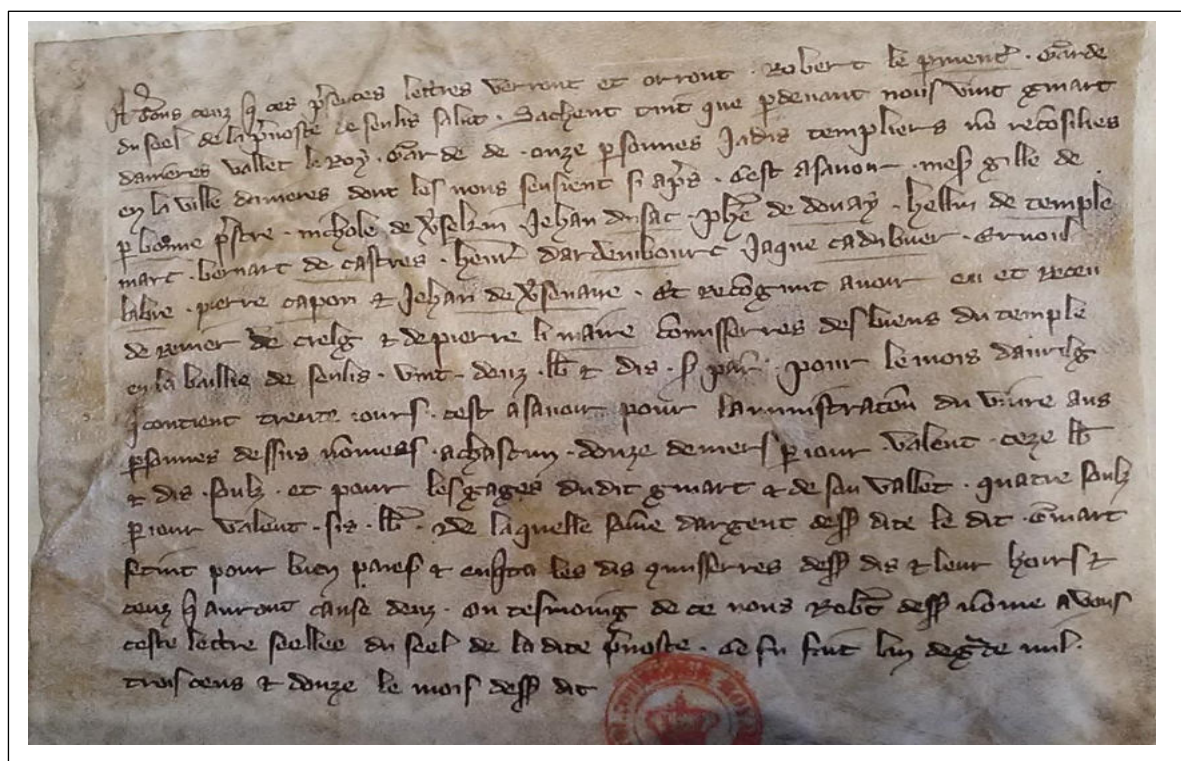 A touz ceuz q ces psentes lettres verront et orront . Robert le pment . Garde
du seel de la pvoste de senlis salut . Sachent tuit que pdevant nous vint gmart
danieres vallet le roy . Garde de . onze psonnes jadis templiers no recosilies
en la ville danieres dont les nons sensient si aps . cest asavoir . mess gille de
pbonne pstre . nichole de jehan du sac . phe de douay . hellin de temple
mart . bernart de castres . henri dardembourc jaque cadubuer . ernoul
labbe . pierre capon & jehan de . Et recognut avoir eu et receu
de renier de creelg & de pierre li maire comisseres des biens du temple
en la baillie de senlis . vint . deuz . lb & dis . s par . pour le mois davrilg
q contient trente jours . cest asavoir pour laministraton du vivre aus
psonnes dessus nomees . a chascun . douze deniers p jour . valent . seze lb
& dis . soulz . et pour les gages dudit gmart & de son vallet . quatre soulz
p jour valent . sis . lb . De laquelle some dargent dess dite le dit . Gmart
se tint pour bien paies & en quita les dis quisseres dess dis & leur hoirs &
ceuz q auront cause deuz . En tesmoing de ce nous Robt dess nome avons
ceste lettre seellee du seel de la dite pvoste . Ce fu fait lan de gce mil .
trois cens & douze le mois dess dit